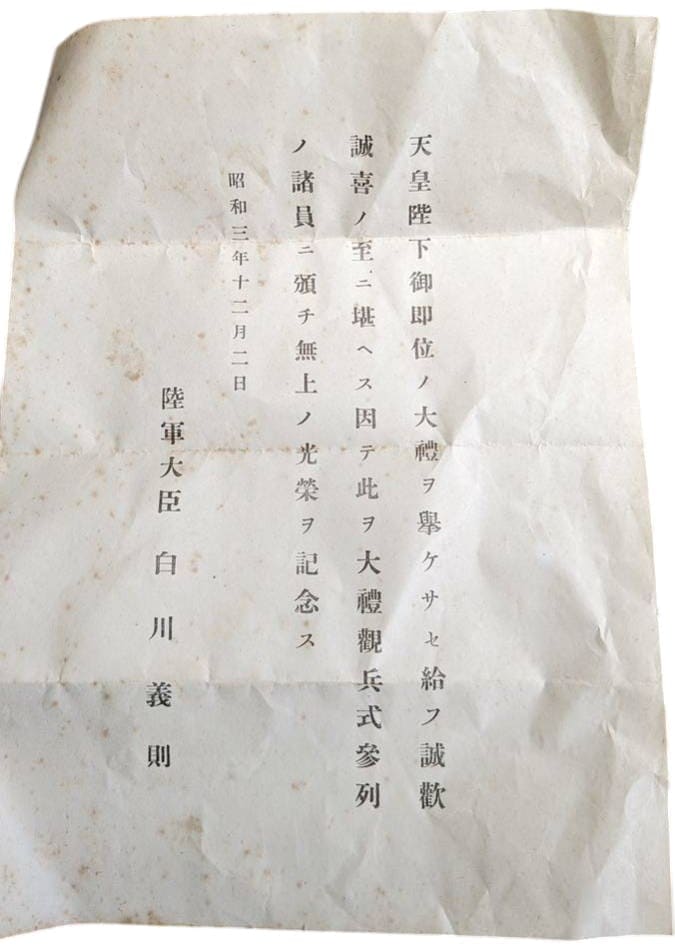 天皇陛下御即位ノ大禮ヲ擧ケサセ給フ誠歡
誠喜ノ至ニ堪ヘス因テ此ヲ大禮觀兵式參列
ノ諸員ニ頒チ無上ノ光榮ヲ記念ス
昭和三年十二月二日
陸軍大臣 白川義則